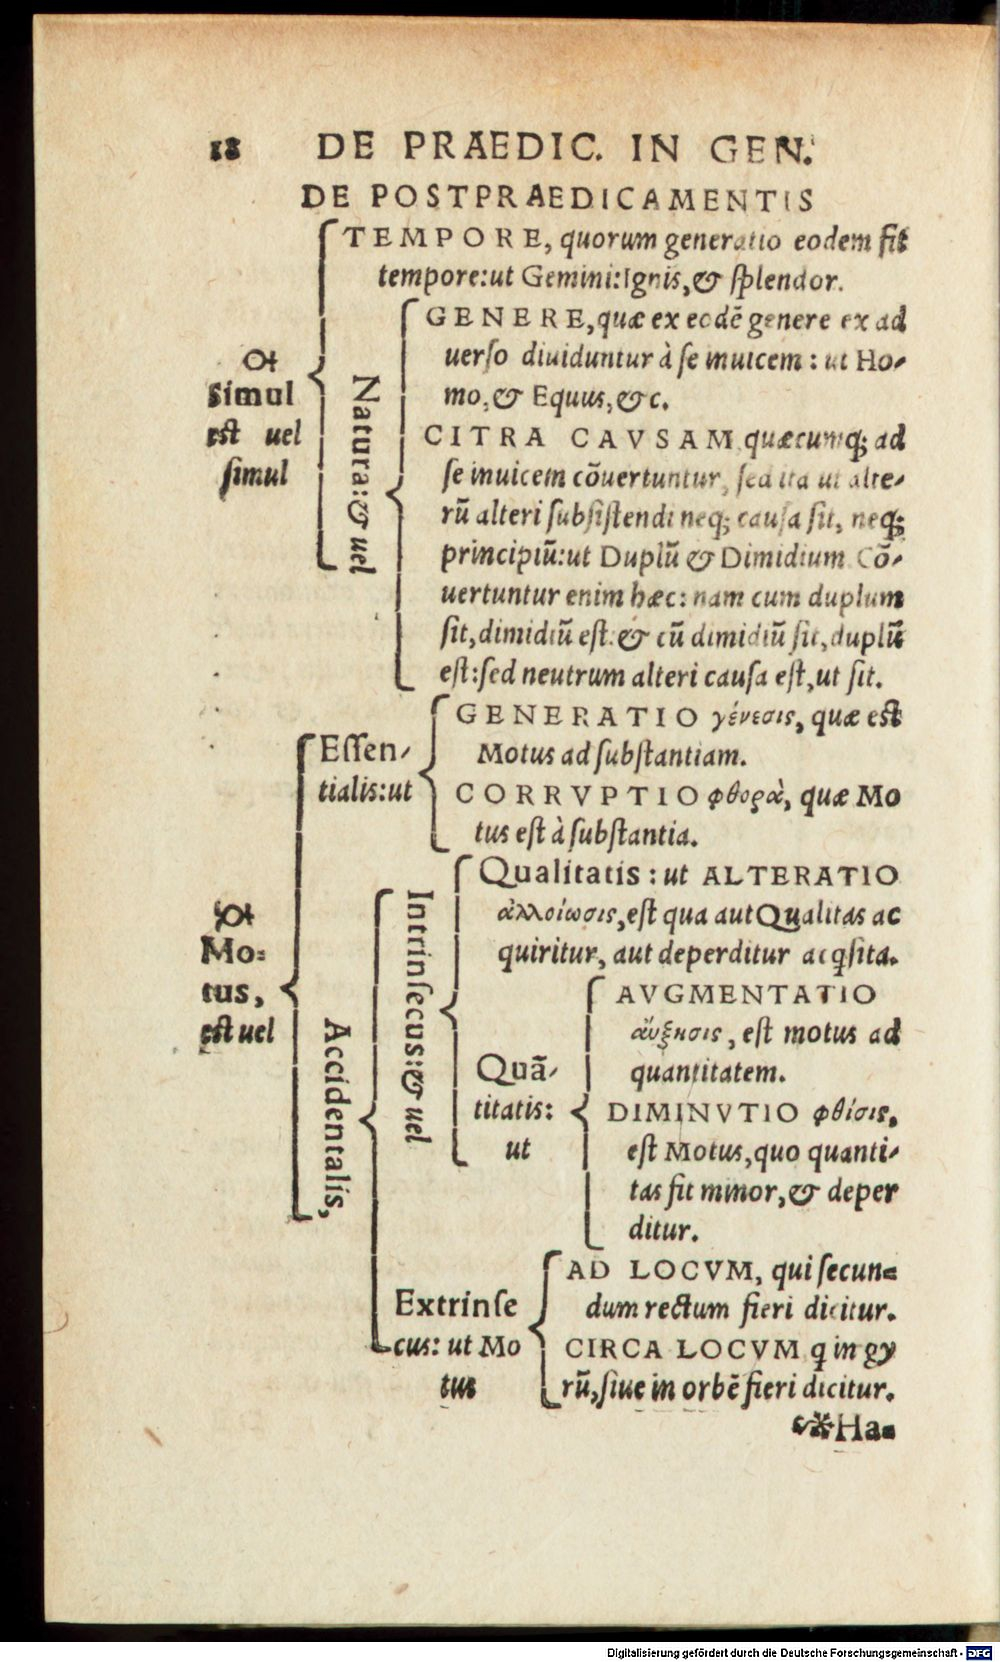 18 DE PRAEDIC. IN GEN.
DE POSTPRAEDICAMENTIS
Simul
est uel
simul
TEMPORE, quorum generatio eodem fit
tempore: ut Gemini: Ignis, & splendor.
Natura: & uel
GENERE, quæ ex eodē genere ex ad
uerso diuiduntur à se inuicem: ut Ho-
mo, & Equus, & c.
CITRA CAVSAM quæcumq; ad
se inuicem cōuertuntur, sed ita ut alte-
rū alteri subsistendi neq; causa sit, neq;
principiū: ut Duplū & Dimidium Cō-
uertuntur enim hæc: nam cum duplum
sit, dimidiū est: & cū dimidiū sit, duplū
est: sed neutrum alteri causa est, ut sit.
Mo-
tus,
est uel
Essen-
tialis: ut
GENERATIO γένεσις, quæ est
Motus ad substantiam.
CORRVPTIO φθορὰ, quæ Mo
tus est à substantia.
Accidentalis,
Intrinsecus: & uel
Qualitatis: ut ALTERATIO
ἀλλοίωσις, est qua aut Qualitas ac
quiritur, aut deperditur acq̃sita.
Quā-
titatis:
ut
AVGMENTATIO
ἄυξησις, est motus ad
quantitatem.
DIMINVTIO φθίσις,
est Motus, quo quanti-
tas fit minor, & deper
ditur.
Extrinse
cus: ut Mo
tus
AD LOCVM, qui secun-
dum rectum fieri dicitur.
CIRCA LOCVM q in gy
rū, siue in orbē fieri dicitur.
Ha-
Digitalisierung gefördert durch die Deutsche Forschungsgemeinschaft - DFG